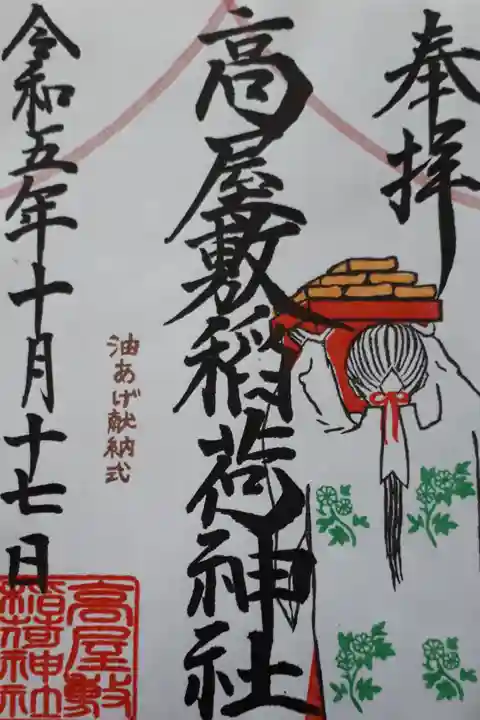 奉拝
高屋敷稲荷神社
油あげ献納式
令和五年十月十七日
高屋敷
稲荷神社